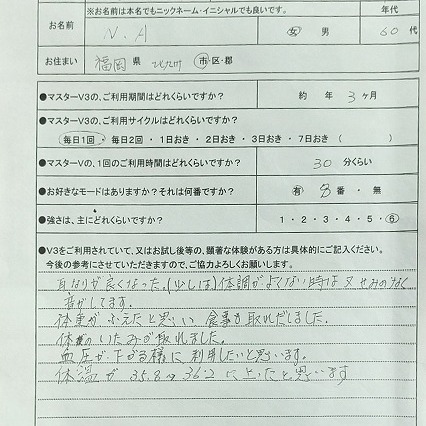 ※お名前は本名でもニックネーム・イニシャルでも良いです。 年代
お名前 N.A 女 男 60 代
お住まい 福岡 県 北九州 市・区・郡
●マスターV3の、ご利用期間はどれくらいですか？ 約 年 3 ヶ月
●マスターV3の、ご利用サイクルはどれくらいですか？
毎日1回・毎日2回・1日おき・2日おき・3日おき・7日おき（ ）
●マスターVの、1回のご利用時間はどれくらいですか？ 30 分くらい
●お好きなモードはありますか？それは何番ですか？ 有 8 番・無
●強さは、主にどれくらいですか？ 1・2・3・4・5・6
●V3をご利用されていて、又はお試し後等の、顕著な体験がある方は具体的にご記入ください。
今後の参考にさせていただきますので、ご協力よろしくお願いします。
耳なりが良くなった。(少しは)体調がよくない時は又せみのなく
音がしてます。
体重がふえたと思い 食事も取れだしました。
体のいたみが取れました。
血圧が下がる様に利用したいと思います。
体温が 35.8→36.2 に上ったと思います